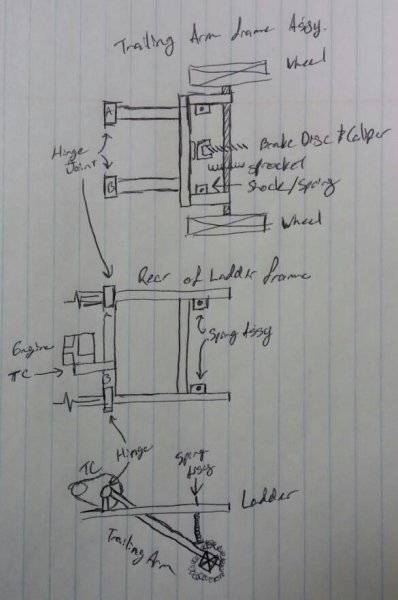 Trailing Arm frame Assy.
Wheel
A
Hinge
Joint
Brake Disc & Caliper
sprocket
B
Shock/Spring
Wheel
Rear of Ladder frame
Engine
TC
Spring Assy
B
Hinge
TC
Spring
Assy
Ladder
Trailing Arm